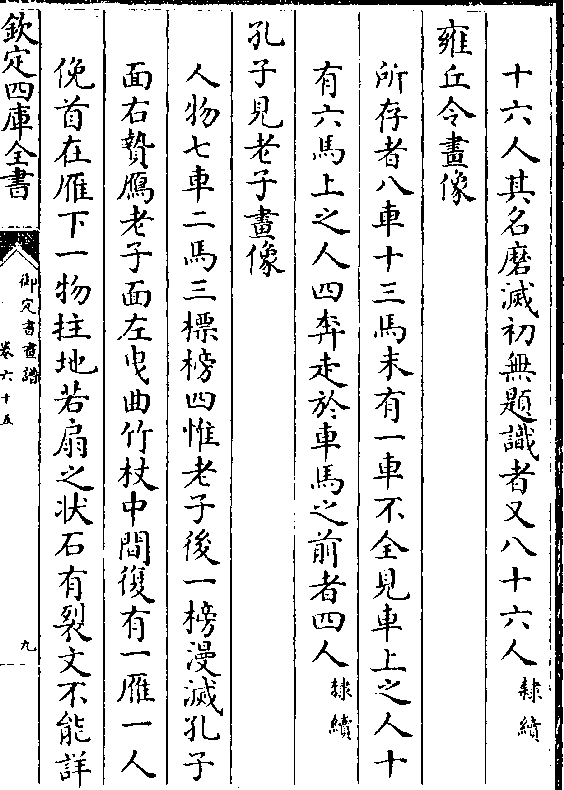 十六人其名磨滅初無題識者又八十六人隸續
雍丘令畫像
所存者八車十三馬末有一車不全見車上之人十
有六馬上之人四奔走於車馬之前者四人隸續
孔子見老子畫像
人物七車二馬三標榜四惟老子後一榜漫滅孔子
面右贄鴈老子面左曳曲竹杖中間復有一雁一人
俛首在雁下一物拄地若扇之状石有裂文不能詳
欽定四庫全書
御定書畫譜
卷六十五
九